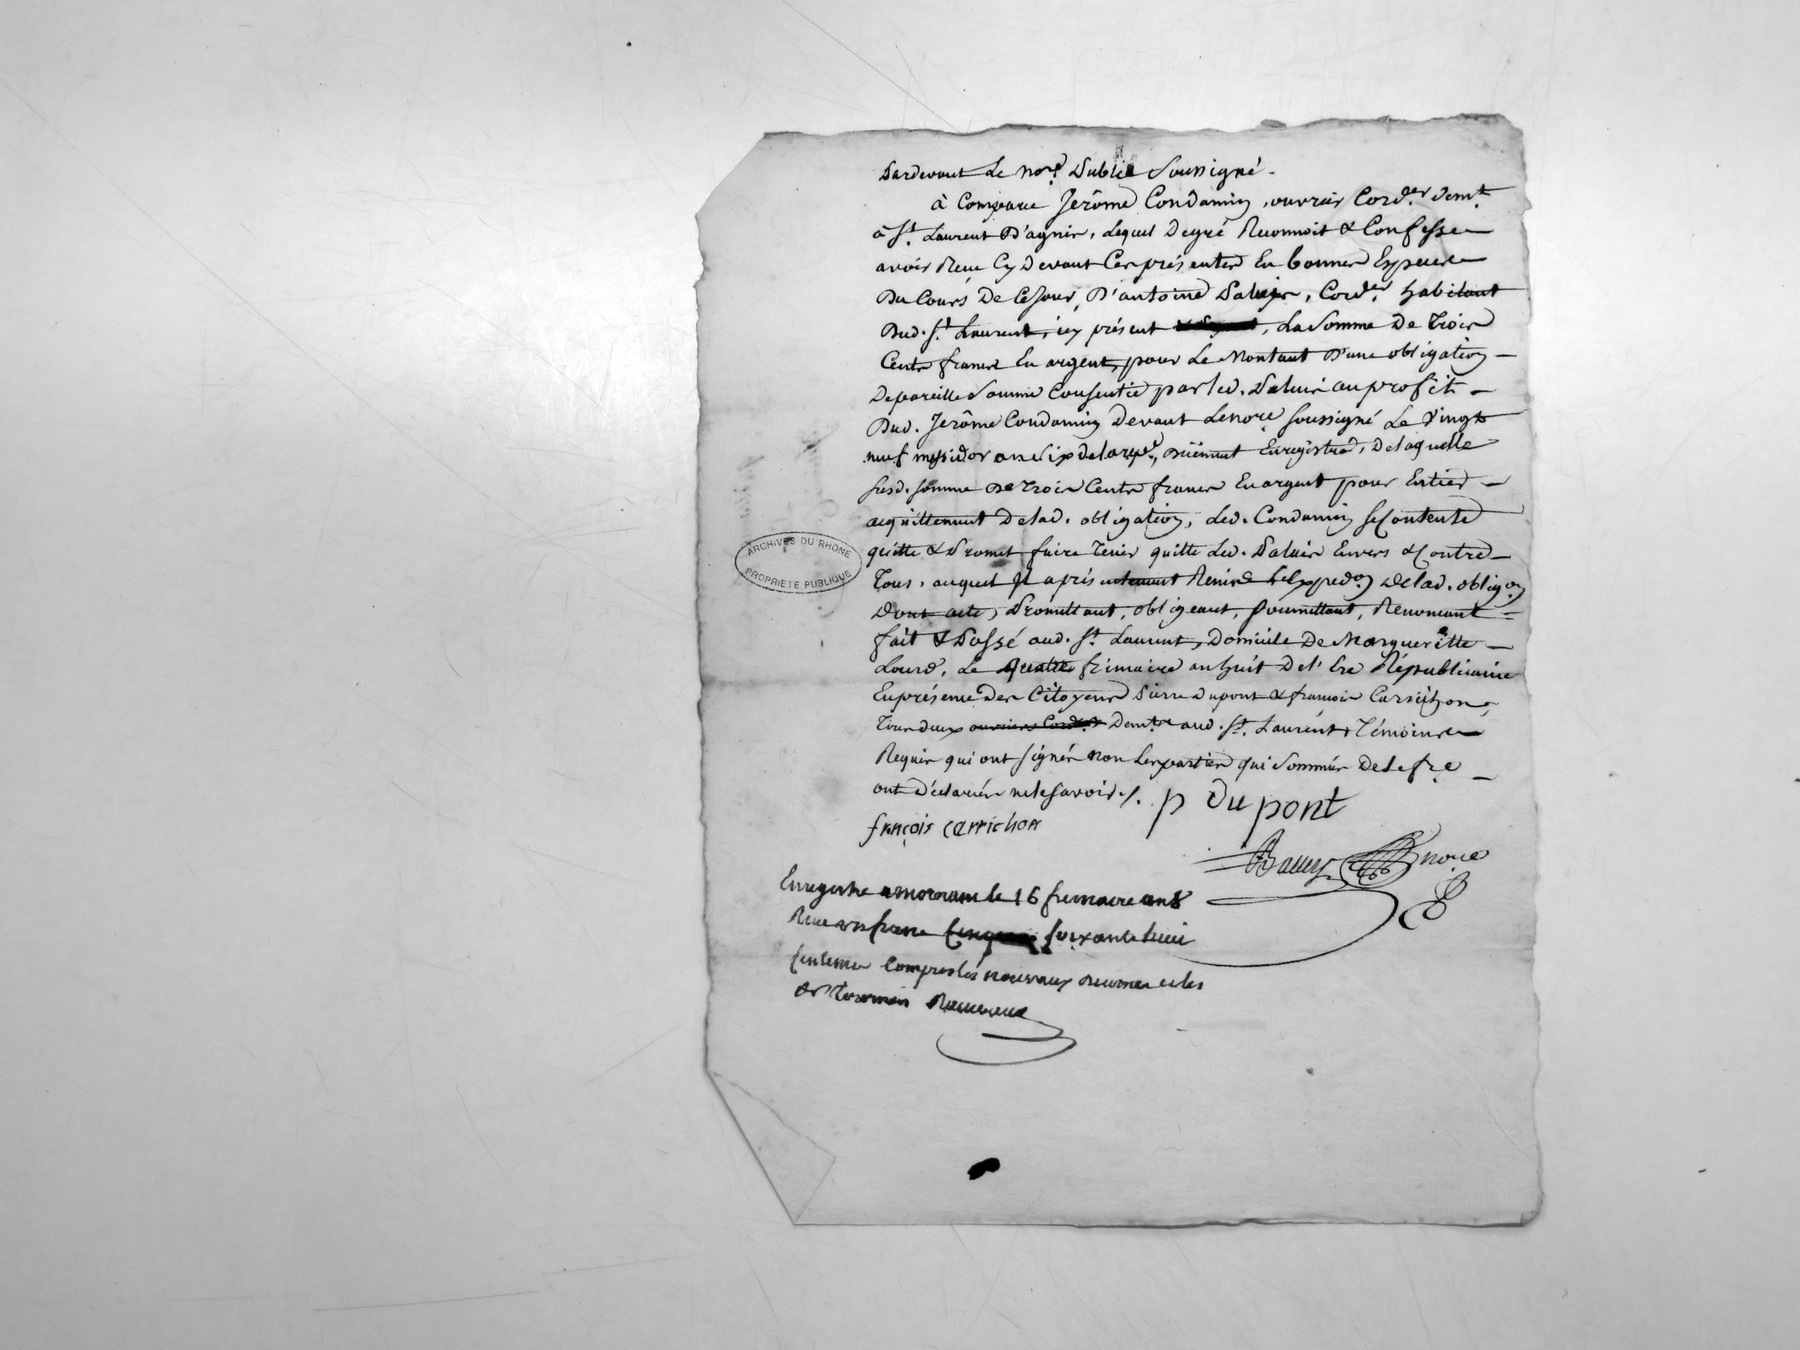 Pardevant Le no.re Public Soussigné.
à Comparu Jerôme Condamin, ouvrier Cord.er dem.t
à S.t Laurent D'agnin, Lequel Degré Reconnoit & Confesse
avoir Reçu Cy Devant Ces présentes En bonnes Especes
Du Cours De Cejour, D'antoine, Cord.er habitant
Dud. S.t Laurent, icy présent, La Somme De Trois
Cents francs En argent, pour Le Montant D'une obligation
De pareille Somme Consentie par led. au profit
Dud. Jerôme Condamin Devant Leno.re Soussigné Le Vingt
neuf messidor an Six de la rep.e, Düement Enregistrée, De laquelle
susd. somme De Trois Cents francs En argent pour Entier
acquittement De lad. obligation, Led. Condamin se Contente
quitte & Promet faire Tenir quitte Led. Envers & Contre
Tous, auquel Il a présentement Remis L'expedon De lad. obligon
Dont acte, Promettant, obligeant, soumettant, Renoncant
fait & Passé aud. S.t Laurent, Domicile De Margueritte
Le quatre frimaire an huit De l'Ere Républicaine
En présence Des Citoyens Pierre Dupont & francois Carrichon,
Tous deux ouvriers Cord.rs Dem.ts aud. S.t Laurent, Témoins
Requis qui ont signés non Les parties qui Sommées De le f.re
ont Déclarées ne le savoir./. p Dupont
françois carrichon
no.re
Enregistre a mornant le 16 frimaire an 8
Recu un franc soixante
centimes compris les nouveaux